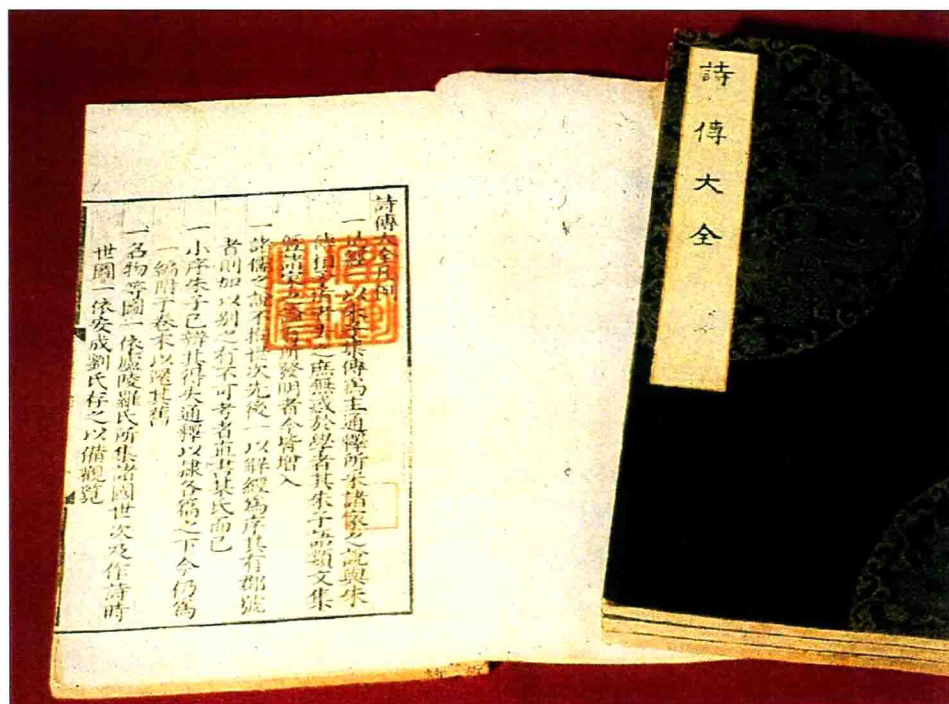 詩傳大全
詩傳大全凡例
一以朱子集傳為主通釋所采諸家之說與朱
傳相之庶無惑於學者其朱子語類文集
所發明者今皆增入
一諸儒之說不拘世次先後一以解經為序其有號
者則加以別之有不可考者直書某氏而已
一小序朱子已辨其得失通釋以隸各篇之下今仍為
一編附于卷末以還其舊
一名物等圖一依廬陵羅氏所集諸國世次及作詩時
世圖一依安成劉氏存之以備觀覽